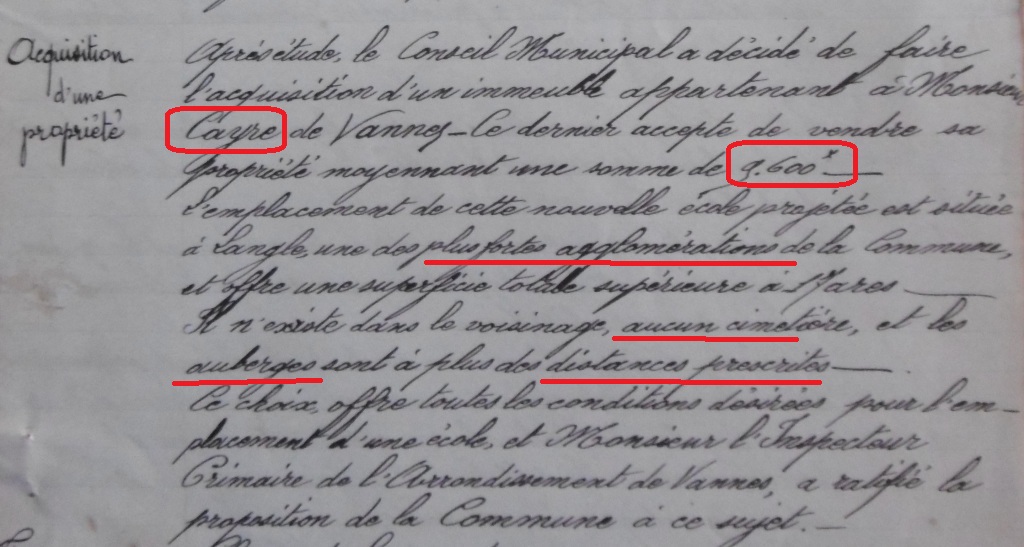 Acquisition
d'une
propriété
Après étude, le Conseil Municipal a décidé de faire
l'acquisition d'un immeuble appartenant à Monsieur
Cayre de Vannes - Ce dernier accepte de vendre sa
propriété moyennant une somme de 9.600 —
L'emplacement de cette nouvelle école projetée est située
à Langle, une des plus fortes agglomérations de la Commune,
et offre une superficie totale supérieure à 17 ares —
Il n'existe dans le voisinage, aucun cimetière, et les
auberges sont à plus des distances prescrites —
Ce choix, offre toutes les conditions désirées pour l'em-
placement d'une école, et Monsieur l'Inspecteur
Primaire de l'Arrondissement de Vannes, a ratifié la
proposition de la Commune à ce sujet. —